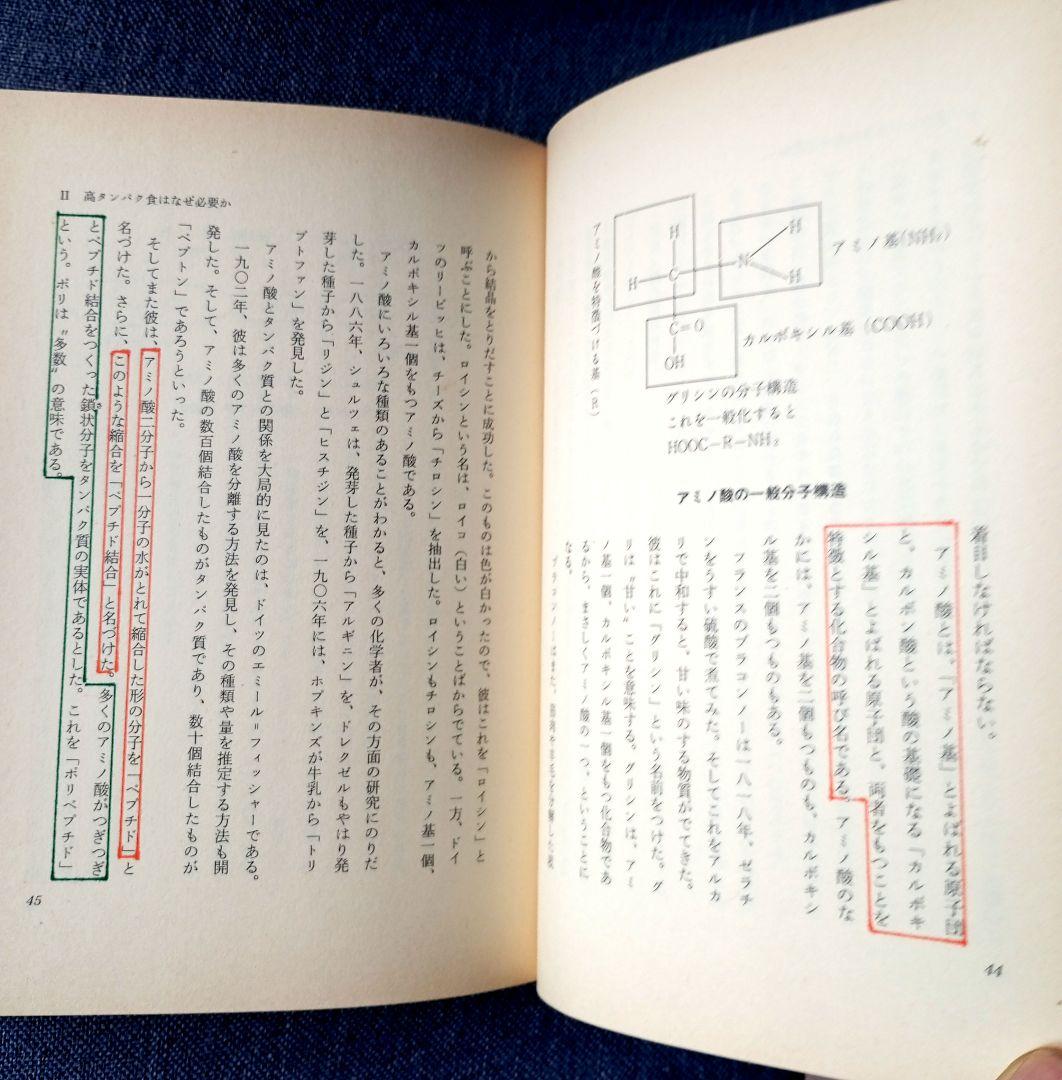 アミノ基(NH₂)
カルボキシル基(COOH)
H
H
N
H
H
C
C=O
OH
アミノ酸を特徴づける基(R)
グリシンの分子構造
これを一般化すると
HOOC-R-NH₂
アミノ酸の一般分子構造
着目しなければならない。
アミノ酸とは、「アミノ基」とよばれる原子団
と、カルボン酸という酸の基礎になる「カルボキ
シル基」とよばれる原子団と、両者をもつことを
特徴とする化合物の呼び名である。アミノ酸のな
かには、アミノ基を二個もつものも、カルボキシ
ル基を二個もつものもある。
フランスのブラコンノーは一八一八年、ゼラチ
ンをうすい硫酸で煮てみた。そしてこれをアルカ
リで中和すると、甘い味のする物質がでてきた。
彼はこれに「グリシン」という名前をつけた。グ
リは〝甘い〟ことを意味する。グリシンは、アミ
ノ基一個、カルボキシル基一個をもつ化合物であ
るから、まさしくアミノ酸の一つ、ということに
なる。
ブラコンノーはまた、筋肉や羊毛を分解した液
44
から結晶をとりだすことに成功した。このものは色が白かったので、彼はこれを「ロイシン」と
呼ぶことにした。ロイシンという名は、ロイコ(白い)ということばからでている。一方、ドイ
ツのリービッヒは、チーズから「チロシン」を抽出した。ロイシンもチロシンも、アミノ基一個、
カルボキシル基一個をもつアミノ酸である。
アミノ酸にいろいろな種類のあることがわかると、多くの化学者が、その方面の研究にのりだ
した。一八八六年、シュルツェは、発芽した種子から「アルギニン」を、ドレクゼルもやはり発
芽した種子から「リジン」と「ヒスチジン」を、一九〇六年には、ホプキンズが牛乳から「トリ
プトファン」を発見した。
アミノ酸とタンパク質との関係を大局的に見たのは、ドイツのエミール=フィッシャーである。
一九〇二年、彼は多くのアミノ酸を分離する方法を発見し、その種類や量を推定する方法も開
発した。そして、アミノ酸の数百個結合したものがタンパク質であり、数十個結合したものが
「ペプトン」であろうといった。
そしてまた彼は、アミノ酸二分子から一分子の水がとれて縮合した形の分子を「ペプチド」と
名づけた。さらに、このような縮合を「ペプチド結合」と名づけた。多くのアミノ酸がつぎつぎ
とペプチド結合をつくった鎖状分子をタンパク質の実体であるとした。これを「ポリペプチド」
という。ポリは〝多数〟の意味である。
II 高タンパク食はなぜ必要か
45